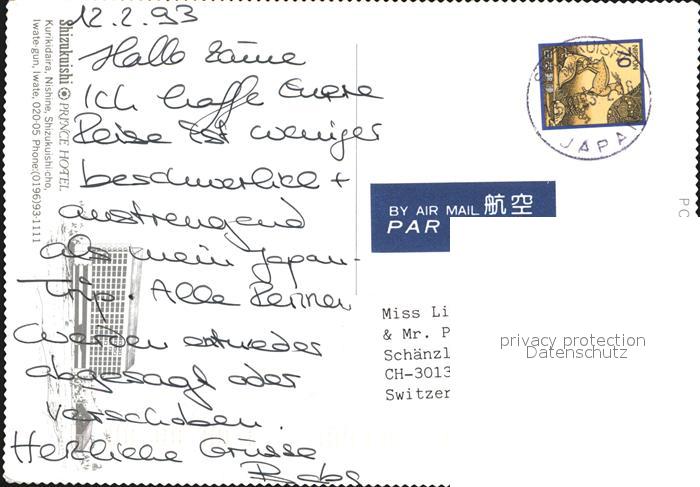 12.2.93
Hallo
Ich hoffe Eure
Reise ist weniger
beschwerlich +
anstrengend
als mein Japan-
Trip. Alle Rennen
werden entweder
abgesagt oder
verschoben.
Herzliche Grüsse
Babs
Shizukuishi PRINCE HOTEL
Kurikidaira, Nishine, Shizukuishi-cho,
Iwate-gun, Iwate, 020-05 Phone:(0196)93-1111
70
NIPPON
JAPAN
BY AIR MAIL 航空
PAR
PC
Miss Li
& Mr. P
Schänzl
CH-3013
Switzer
privacy protection
Datenschutz